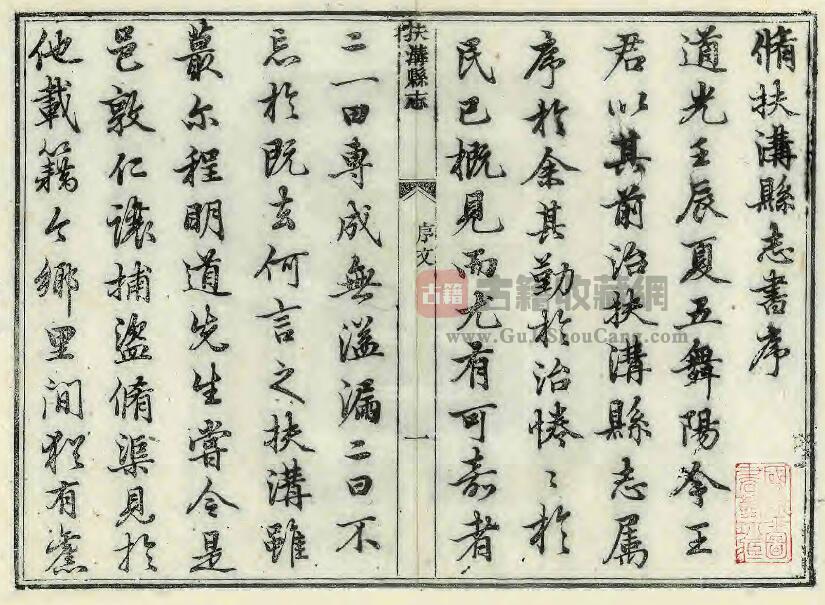 脩扶溝縣志書序
道光壬辰夏五舞陽令王
君以其前治扶溝縣志属
序於余其勤於治惓〻於
民已概見而尤有可嘉者
扶溝縣志
序文
一
二一曰專成無溢漏二曰不
忘於既去何言之扶溝雖
蕞尔程明道先生嘗令是
邑敦仁讓捕盜脩渠見於
他載籍今鄉里間猶有
古籍
古籍收藏網
www.GuJiShouCang.com